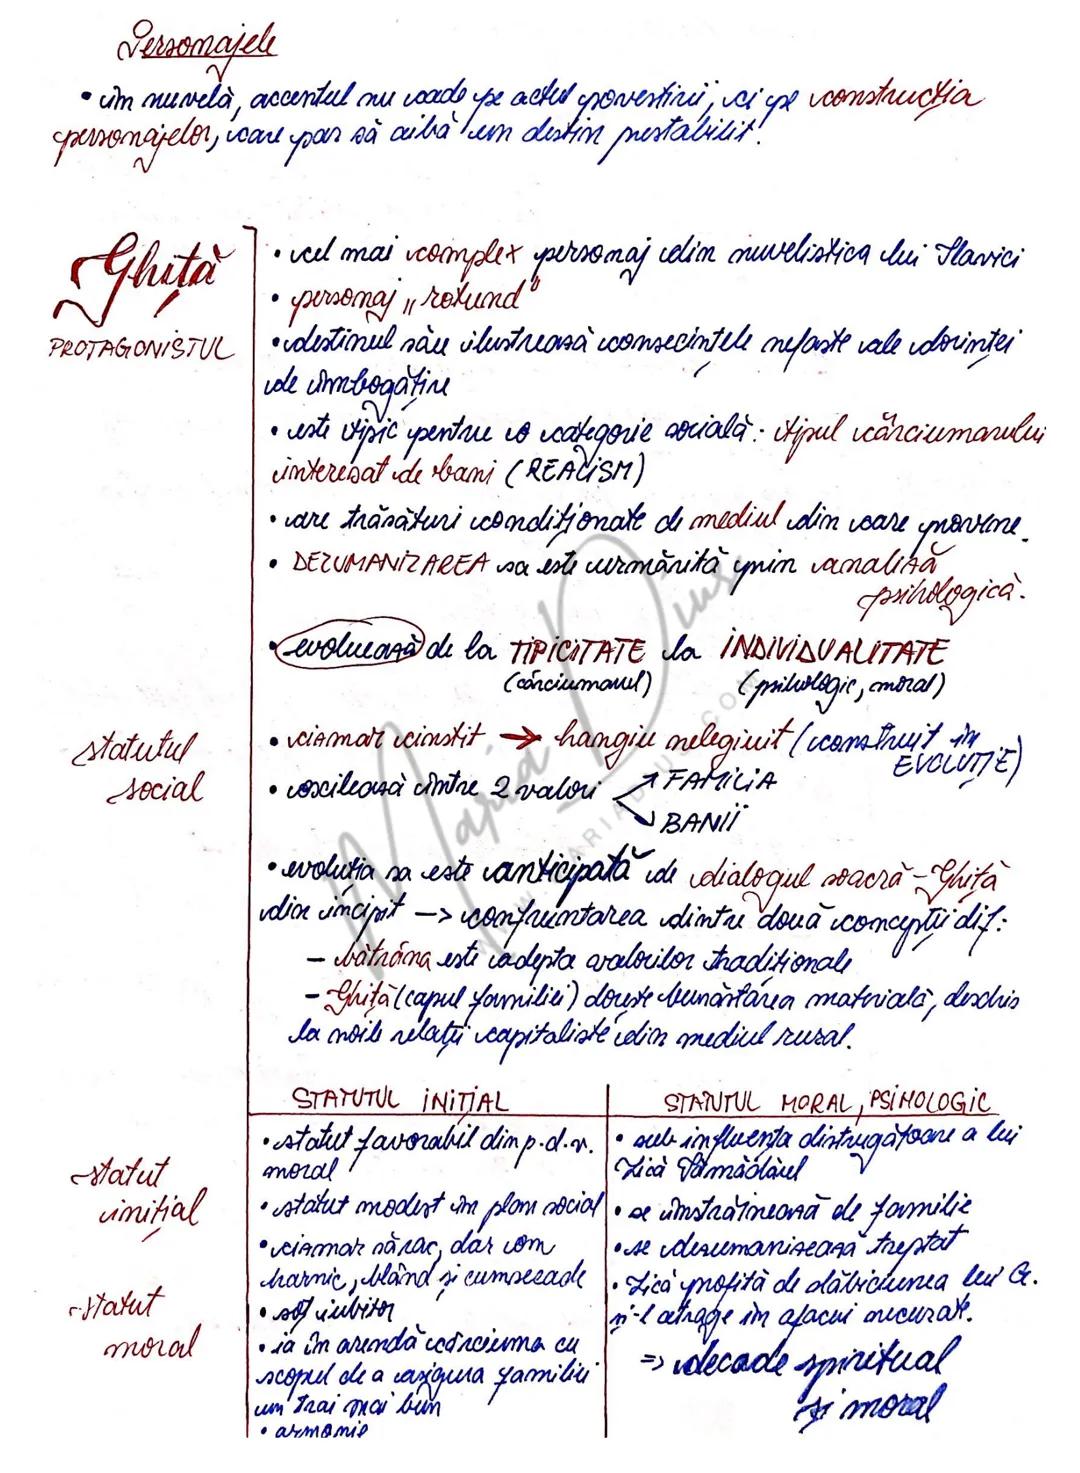 Personajele
• în nuvelă, accentul nu cade pe actul povestirii, ci pe construcția
personajelor, care par să aibă un destin prestabilit.
Ghiță
PROTAGONISTUL
• cel mai complex personaj din nuvelistica lui Slavici
• personaj „rotund"
• destinul său ilustrează consecințele nefaste ale dorinței
de îmbogățire
• este tipic pentru o categorie socială: tipul cârciumarului
interesat de bani (REALISM)
• are trăsături condiționate de mediul din care provine.
• DEZUMANIZAREA sa este urmărită prin analiză
psihologică.
• evoluează de la TIPICITATE la INDIVIDUALITATE
(cârciumarul) (psihologic, moral)
statutul
social
• cizmar cinstit → hangiu nelegiuit (construit în
EVOLUȚIE)
• oscilează între 2 valori → FAMILIA
→ BANII
• evoluția sa este anticipată de dialogul soacră - Ghiță
din incipit -> confruntarea dintre două concepții dif:
- bătrâna este adepta valorilor tradiționale
- Ghiță (capul familiei) dorește bunăstarea materială, deschis
la noile relații capitaliste din mediul rural.
STATUTUL INIȚIAL
STATUTUL MORAL, PSIHOLOGIC
statut
inițial
statut
moral
• statut favorabil din p.d.v.
moral
• statut modest în plan social
• cizmar sărac, dar om
harnic, blând și cumsecade
• soț iubitor
• ia în arendă cârciuma cu
scopul de a asigura familiei
un trai mai bun
• armonie
• sub influența distrugătoare a lui
Lică Sămădăul
• se înstrăinează de familie
• se dezumanizează treptat
• Lică profită de slăbiciunea lui G.
și-l atrage în afaceri necurate.
=> decade spiritual
și moral
Maria Dinu